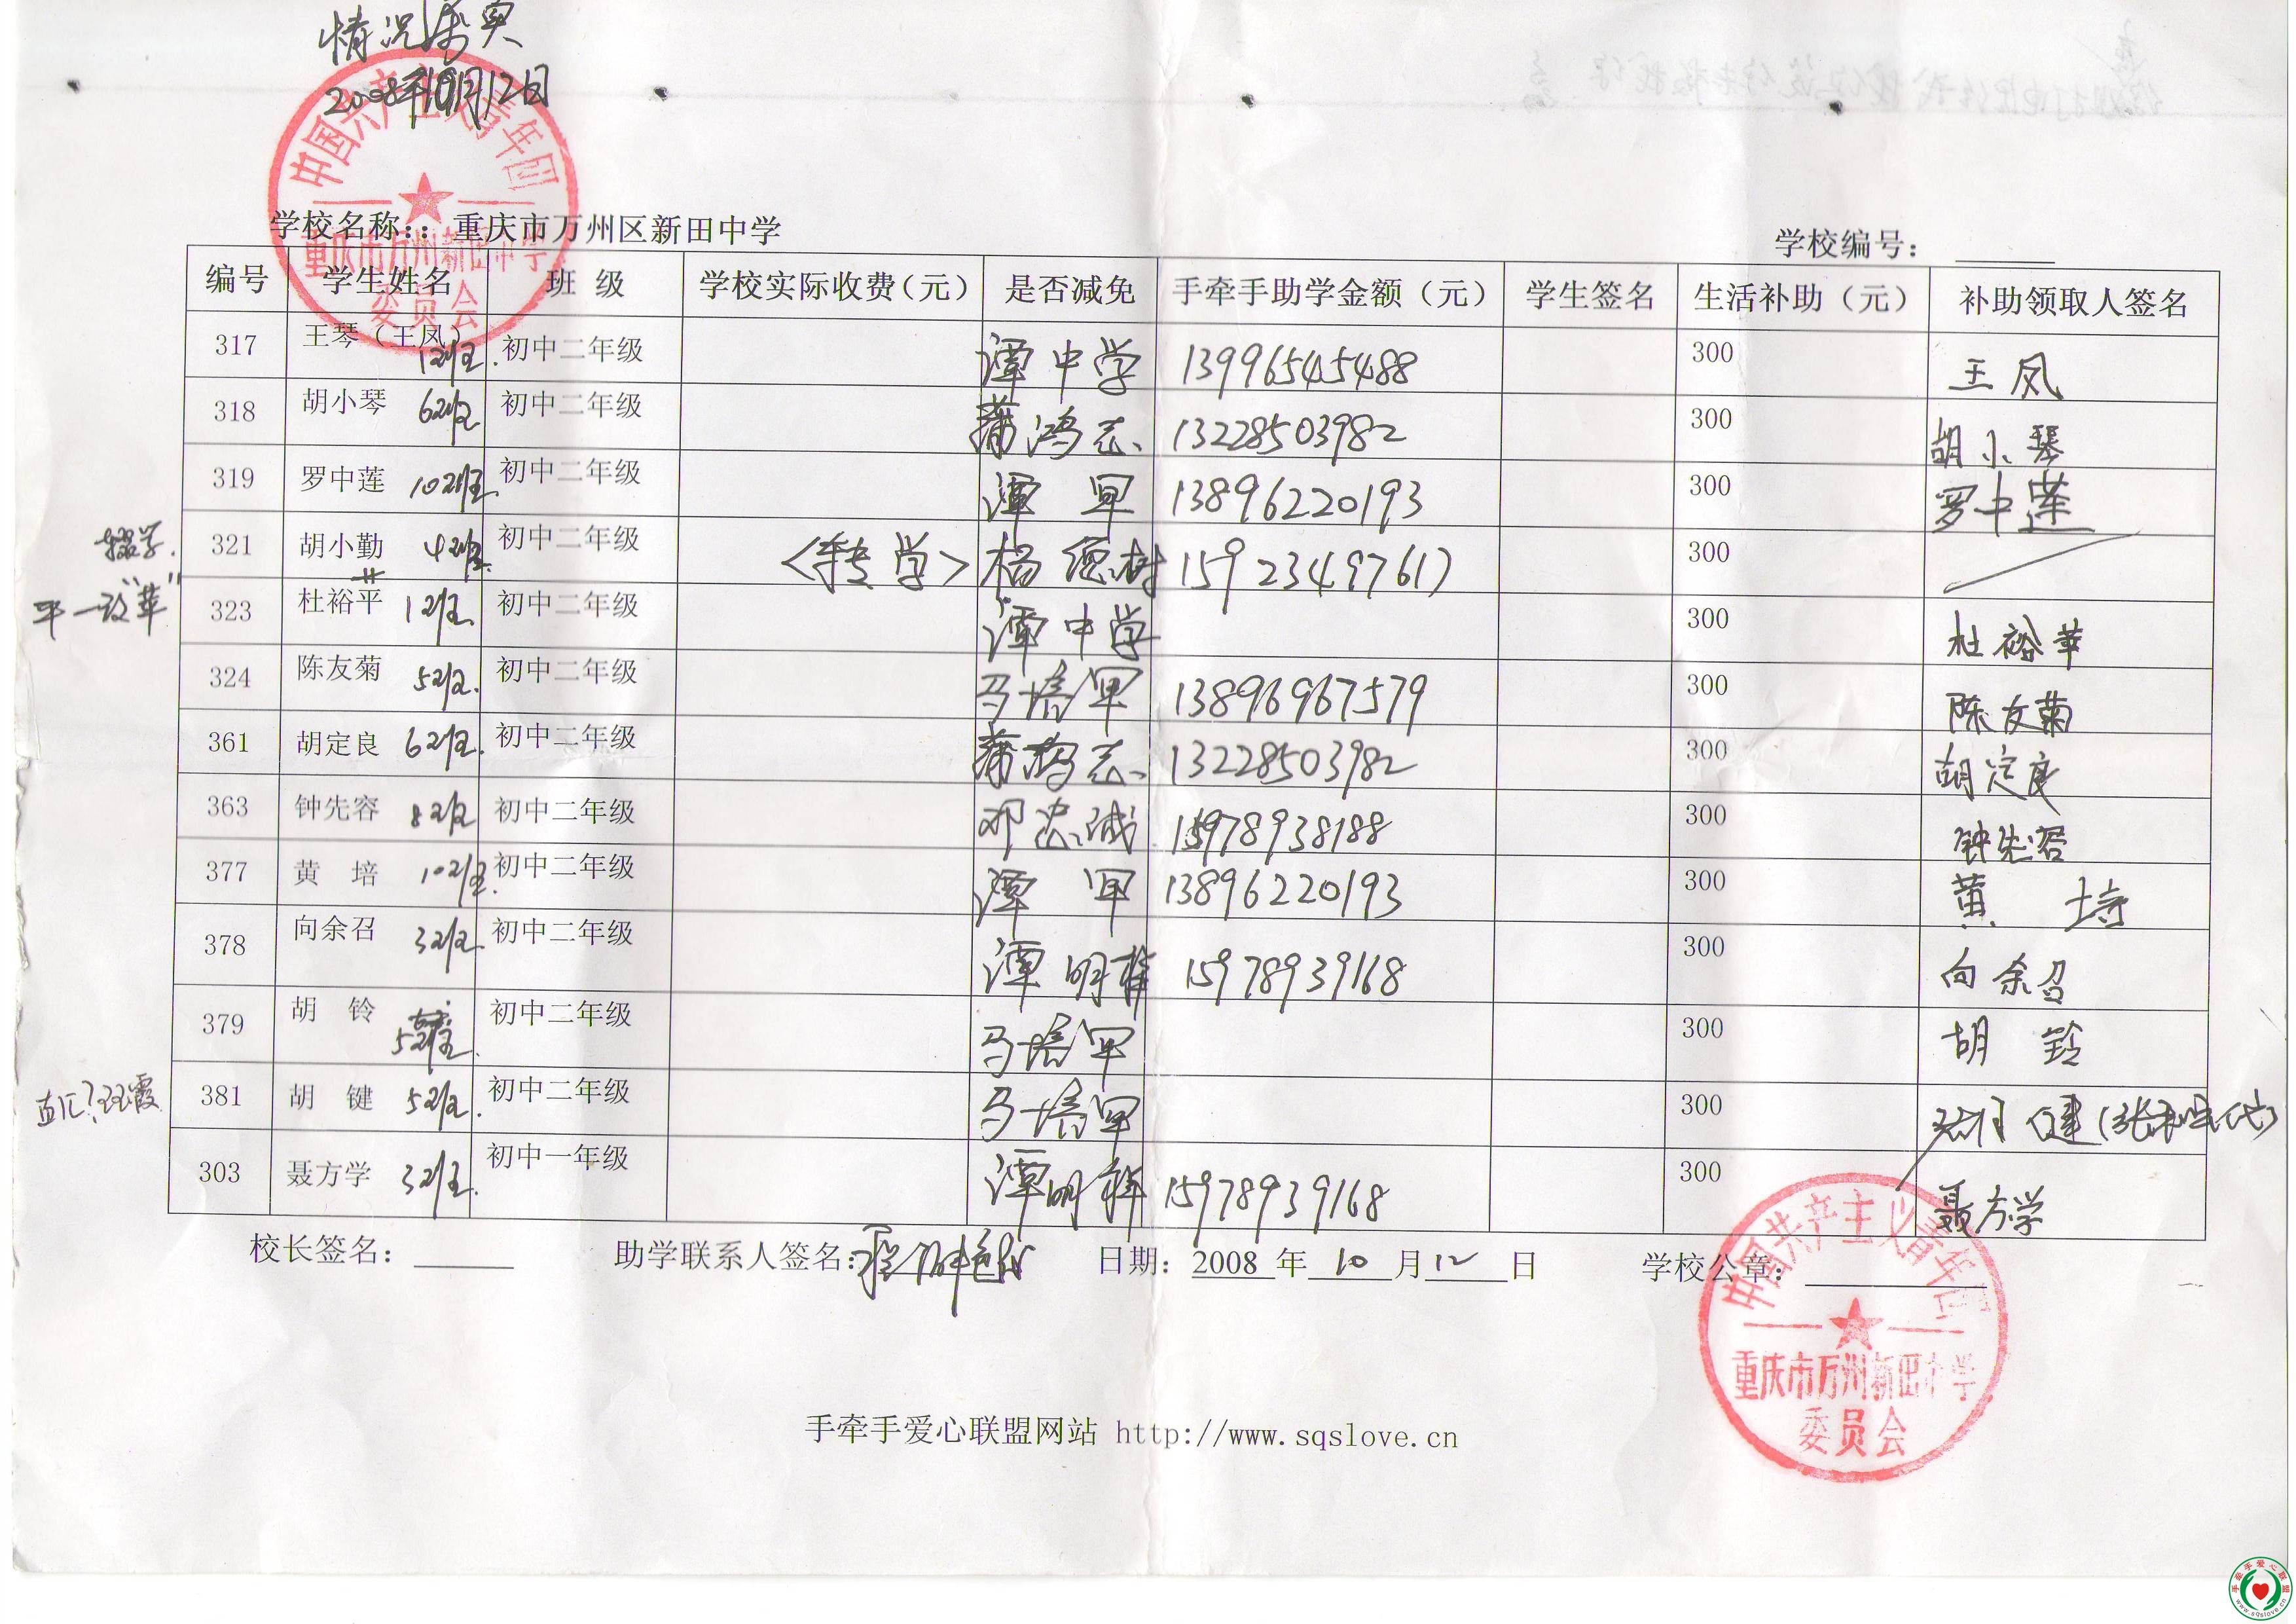 情况属实
2008年10月12日
中国共产主义青年团
重庆市万州新田中学
委员会
学校名称:: 重庆市万州区新田中学
学校编号:
编号 学生姓名 班 级 学校实际收费(元) 是否减免 手牵手助学金额(元) 学生签名 生活补助(元) 补助领取人签名
317 王琴(王凤) 初中二年级 谭中学 13996545488 300 王凤
318 胡小琴 初中二年级 蒲鸿志 13228503982 300 胡小琴
319 罗中莲 初中二年级 谭军 13896220193 300 罗中莲
辍学. 321 胡小勤 初中二年级 <转学> 杨德树 15923497617 300
平一改"苹" 323 杜裕平 初中二年级 谭中学 300 杜裕苹
324 陈友菊 初中二年级 马培军 13896967579 300 陈友菊
361 胡定良 初中二年级 蒲鸿志 13228503982 300 胡定良
363 钟先容 初中二年级 邓忠诚 15978938188 300 钟先容
377 黄 培 初中二年级 谭军 13896220193 300 黄培
378 向余召 初中二年级 谭明祥 15978939168 300 向余召
379 胡 铃 初中二年级 马培军 300 胡铃
381 胡 键 初中二年级 马培军 300
303 聂方学 初中一年级 谭明祥 15978939168 300 聂方学
校长签名: 助学联系人签名: 日期: 2008 年 10 月 12 日 学校公章:
中国共产主义青年团
重庆市万州新田中学
委员会
手牵手爱心联盟网站 http://www.sqslove.cn
手牵手爱心联盟
www.sqslove.cn